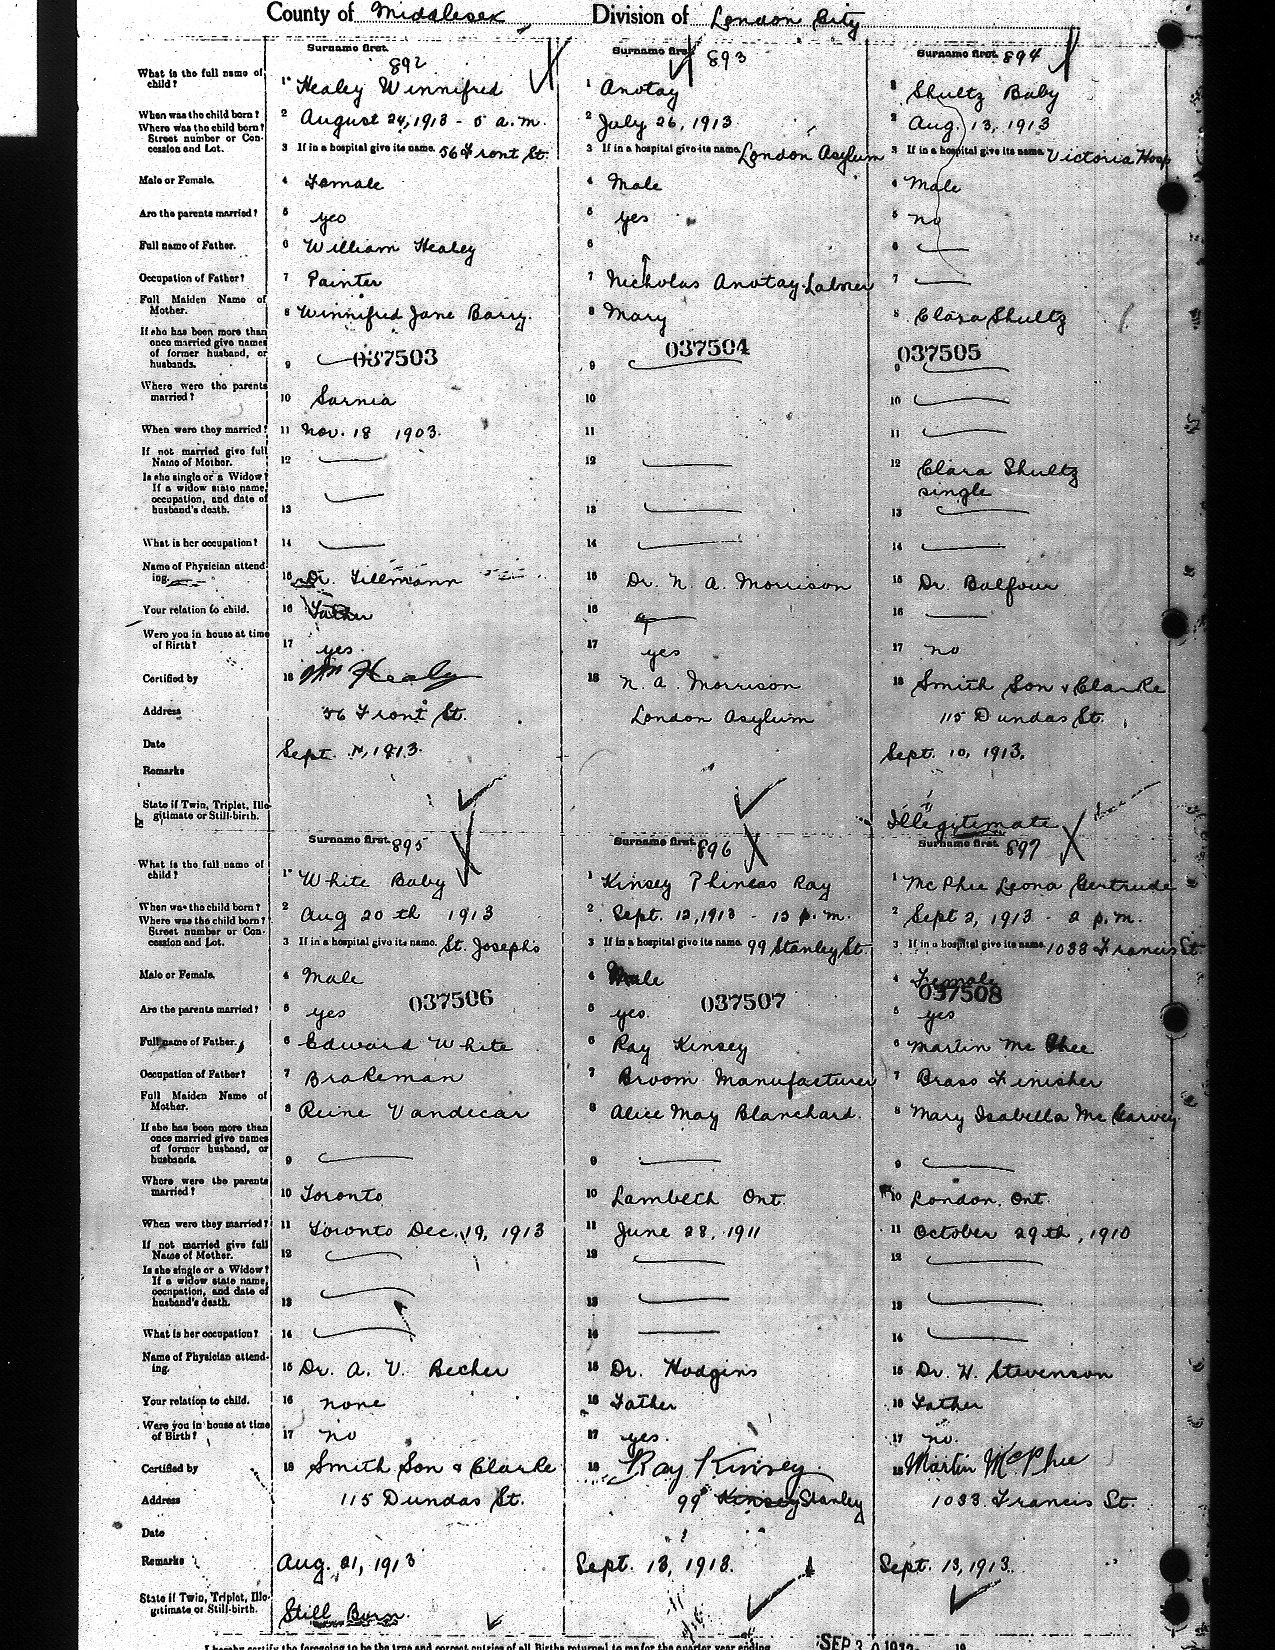 County of Middlesex Division of London City
Surname first. Surname first. Surname first.
892 893 894
What is the full name of child? 1 Healey Winnifred 1 Anotay 1 Shultz Baby
When was the child born? 2 August 24, 1913 - 5 a.m. 2 July 26, 1913 2 Aug. 13, 1913
Where was the child born? Street number or Concession and Lot. 3 If in a hospital give its name. 56 Front St. 3 If in a hospital give its name. London Asylum 3 If in a hospital give its name. Victoria Hosp
Male or Female. 4 Female 4 Male 4 Male
Are the parents married? 5 yes 5 yes 5 no
Full name of Father. 6 William Healey 6 6
Occupation of Father? 7 Painter 7 Nicholas Anotay. Laborer 7
Full Maiden Name of Mother. 8 Winnifred Jane Barry. 8 Mary 8 Clara Shultz
037503 037504 037505
If she has been more than once married give names of former husband, or husbands. 9 9 9
Where were the parents married? 10 Sarnia 10 10
When were they married? 11 Nov. 18 1903. 11 11
If not married give full Name of Mother. 12 12 12 Clara Shultz
Is she single or a Widow? If a widow state name, occupation, and date of husband's death. 13 13 13 single
What is her occupation? 14 14 14
Name of Physician attending. 15 Dr. Tillmann 15 Dr. N. A. Morrison 15 Dr. Balfour
Your relation to child. 16 Father 16 16
Were you in house at time of Birth? 17 yes 17 yes 17 no
Certified by 18 Wm Healy 18 N. A. Morrison 18 Smith Son & Clarke
Address 56 Front St. London Asylum 115 Dundas St.
Date Sept. 1913. Sept. 10, 1913.
Remarks
State if Twin, Triplet, Illegitimate or Still-birth. Illegitimate
Surname first. 895 Surname first. 896 Surname first. 897
What is the full name of child? 1 White Baby 1 Kinsey Phineas Ray 1 McPhee Leona Gertrude
When was the child born? 2 Aug 20th 1913 2 Sept. 12, 1913 - 12 p.m. 2 Sept 2, 1913 - 2 p.m.
Where was the child born? Street number or Concession and Lot. 3 If in a hospital give its name. St. Joseph's 3 If in a hospital give its name. 99 Stanley St. 3 If in a hospital give its name. 1033 Francis St.
Male or Female. 4 Male 4 Male 4 Female
037506 037507 037508
Are the parents married? 5 yes 5 yes. 5 yes
Full name of Father. 6 Edward White 6 Ray Kinsey 6 Martin McPhee
Occupation of Father? 7 Brakeman 7 Broom Manufacturer 7 Brass Finisher
Full Maiden Name of Mother. 8 Reine Vandecar 8 Alice May Blanchard. 8 Mary Isabella McGarvey
If she has been more than once married give names of former husband, or husbands. 9 9 9
Where were the parents married? 10 Toronto 10 Lambeth Ont. 10 London, Ont.
When were they married? 11 Toronto Dec. 19, 1913 11 June 28, 1911 11 October 29th, 1910
If not married give full Name of Mother. 12 12 12
Is she single or a Widow? If a widow state name, occupation, and date of husband's death. 13 13 13
What is her occupation? 14 14 14
Name of Physician attending. 15 Dr. A. V. Becher 15 Dr. Hodgins 15 Dr. H. Stevenson
Your relation to child. 16 none 16 Father 16 Father
Were you in house at time of Birth? 17 no 17 yes. 17 no.
Certified by 18 Smith Son & Clarke 18 Ray Kinsey 18 Martin McPhee
Address 115 Dundas St. 99 Kinsey Stanley 1033 Francis St.
Date
Remarks Aug. 21, 1913 Sept. 13, 1913. Sept. 13, 1913.
State if Twin, Triplet, Illegitimate or Still-birth. Still Born.
I hereby certify the foregoing to be the true and correct entries of all Births returned to me for the quarter year ending SEP 3 0 1913 19